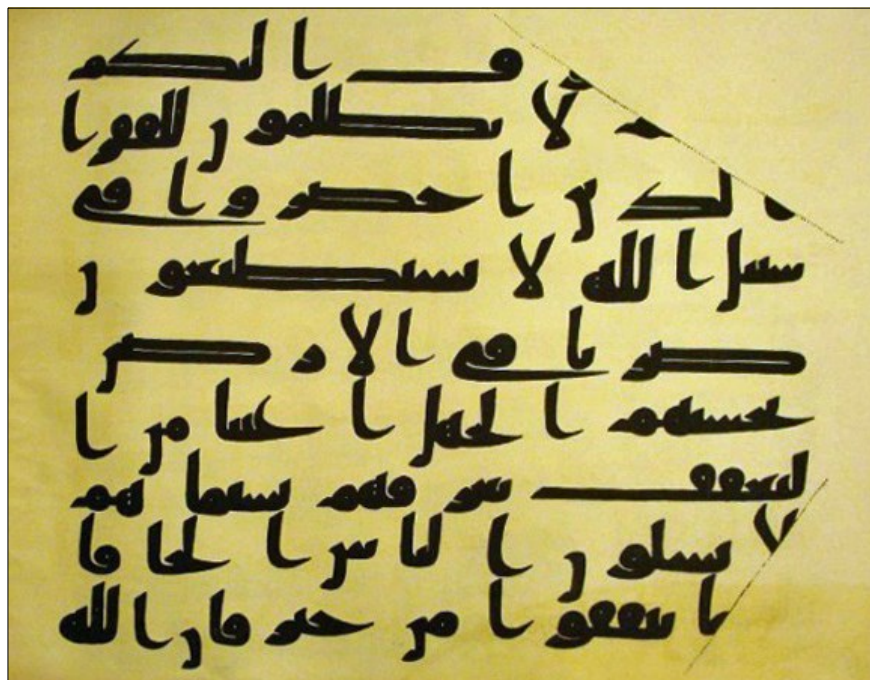 ف اليكم
لا تظلمون للفقرا
الذين احصروا في
سبيل الله لا يستطيعون
ضربا في الارض
يحسبهم الجهل اغنيا من ا
لتعفف تعرفهم بسيماهم
لا يسلون الناس الحافا
تنفقوا من خير فان الله